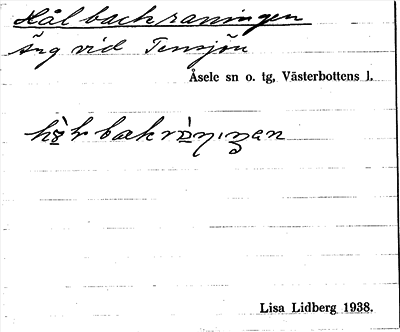 Hålbackraningen
äng vid Tensjön
Åsele sn o. tg, Västerbottens l.
Lisa Lidberg 1938.